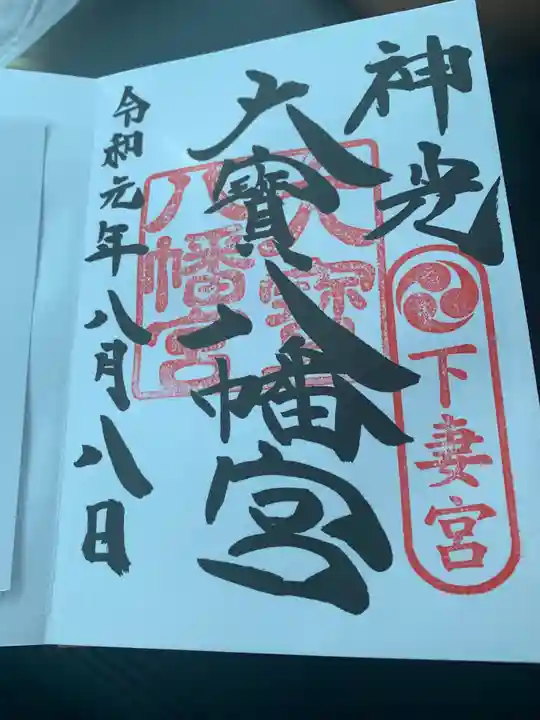 神光
下妻宮
大寶八幡宮
大寳八幡宮
令和元年八月八日